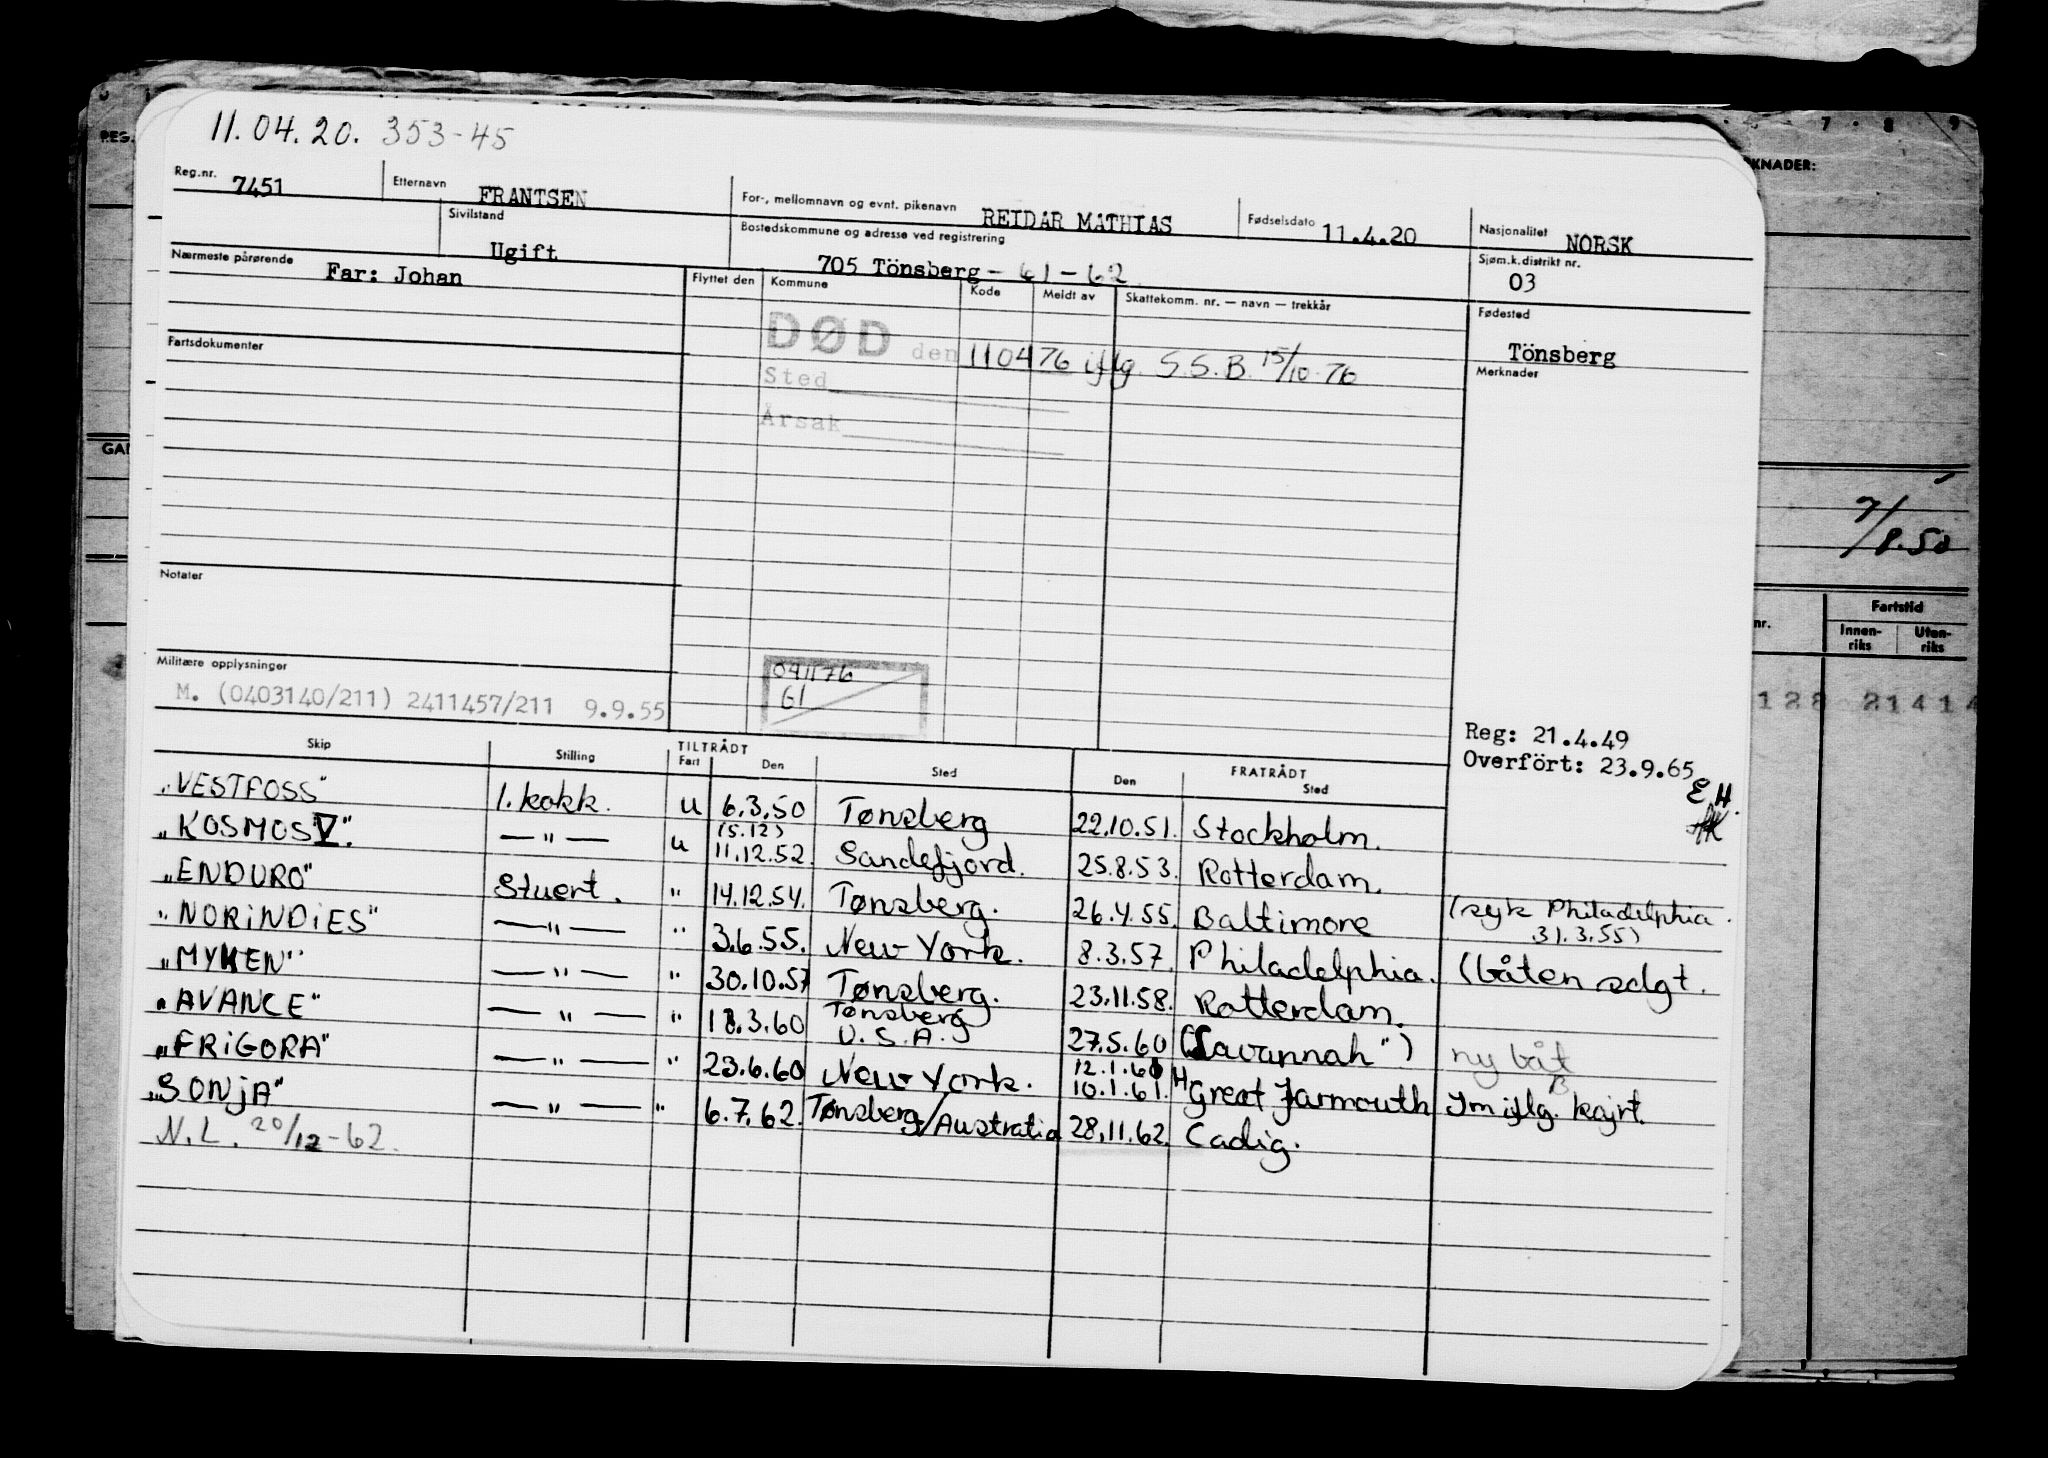 11.04.20. 353-45
Reg.nr. 7451 Etternavn FRANTSEN For-, mellomnavn og evnt. pikenavn REIDAR MATHIAS Fødselsdato 11.4.20 Nasjonalitet NORSK
Sivilstand Ugift Bostedskommune og adresse ved registrering 705 Tönsberg - 61-62 Sjøm.k.distrikt nr. 03
Nærmeste pårørende Far: Johan Flyttet den Kommune Kode Meldt av Skattekomm. nr. — navn — trekkår Fødested Tönsberg
Fartsdokumenter DØD den 110476 iflg. S.S.B. 15/10-76 Merknader
Sted
Årsak
Notater
Militære opplysninger 041176
M. (0403140/211) 2411457/211 9.9.55 61
Reg: 21.4.49
Overfört: 23.9.65 E.H.
Skip Stilling TILTRÅDT Fart Den Sted FRATRÅDT Den Sted
"VESTFOSS" 1. kokk. u 6.3.50 Tønsberg 22.10.51. Stockholm.
"KOSMOS V". — " — u (5.12) 11.12.52. Sandefjord. 25.8.53. Rotterdam.
"ENDURO" Stuert. " 14.12.54. Tønsberg. 26.4.55. Baltimore (syk Philadelphia. 31.3.55)
"NORINDIES" — " — " 3.6.55. New York. 8.3.57. Philadelphia. (båten solgt.
"MYKEN" — " — " 30.10.57 Tønsberg. 23.11.58. Rotterdam.
"AVANCE" — " — " 18.3.60 Tønsberg U.S.A. 27.5.60 (Savannah") ny båt
"FRIGORA" — " — " 23.6.60 New York. 12.1.60 10.1.61. Great Jarmouth Im iflg. kajrt.
"SONJA" — " — " 6.7.62. Tønsberg/Australia 28.11.62. Cadig.
N.L. 20/12-62.
REG.
KNADER:
7 8 9
7/8.50
nr. Fartstid
Innen-riks Uten-riks
128 21414